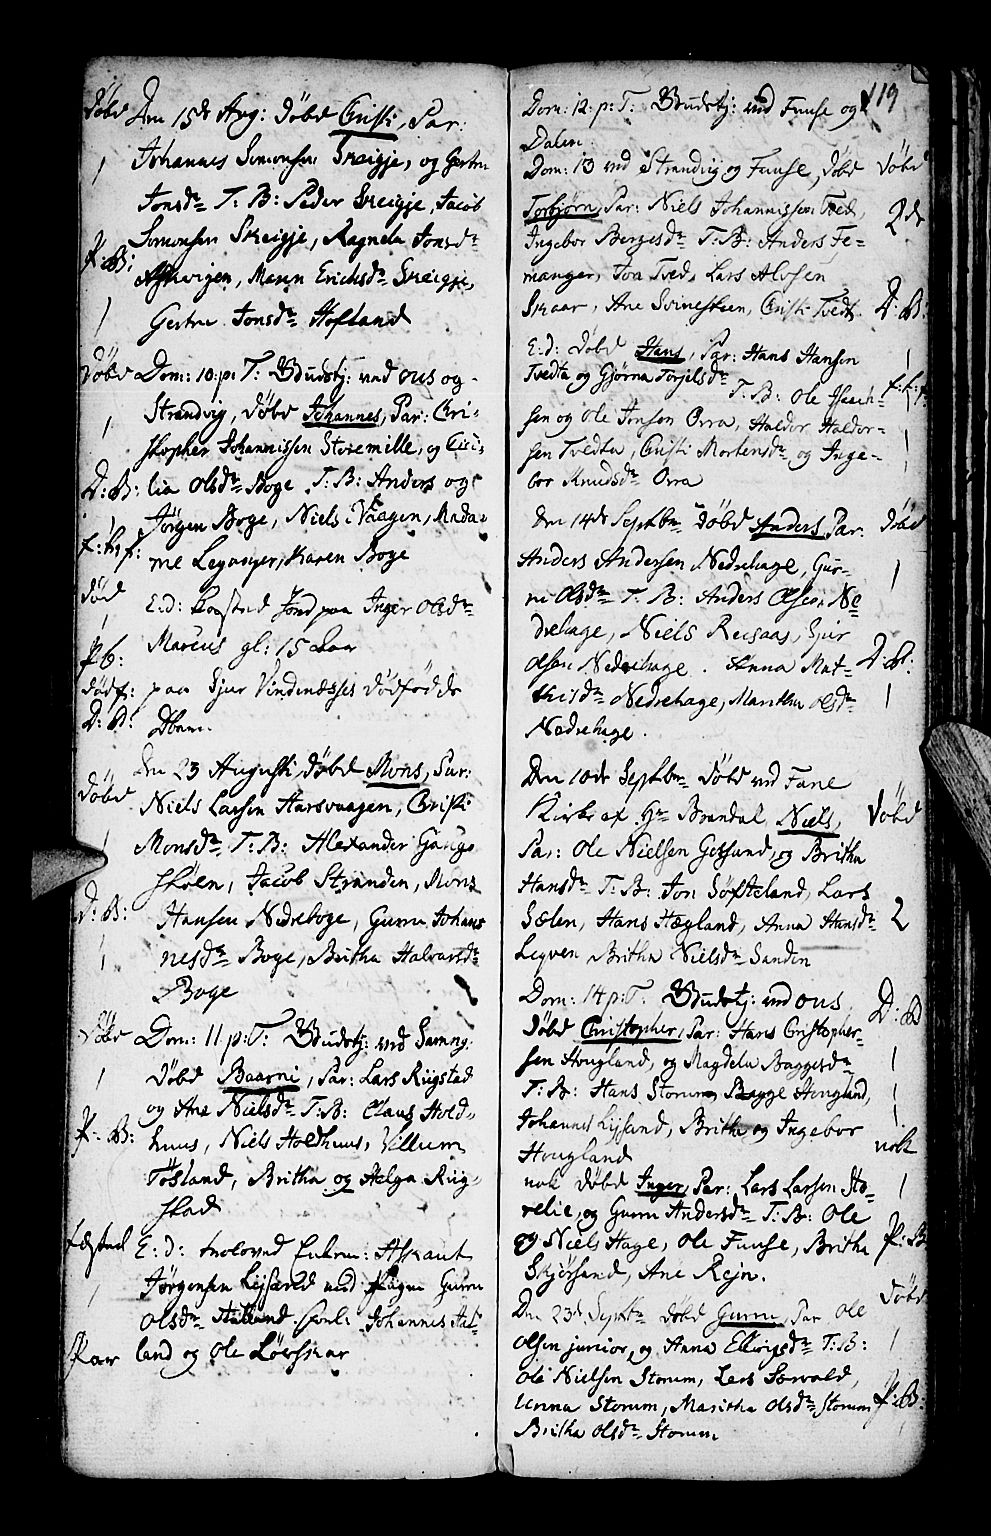 Döbd Den 15de Aug: döbd Cristi, Par:
1 Johannes Simonsen Skeigje, og Gertru
Jonsdr T: B: Peder Skeigje, Jacob
P: B: Simonsen Skeigje, Ragnela Jonsdr
Marin Erichsdr Skeigje,
1 Gertru Jonsdr Hofland
Döbd Dom: 10: p: T: Gudstj: ved ous og
1 Strandvig, döbd Johannes, Par: Cri-
stopher Johannissen Storemille, og Ceci-
D: B: lia Olsdr Boge T: B: Anders og
Jörgen Boge, Niels i Vaagen, Mada-
me Leganger, Karen Boge
död E: d: kastad Jord paa Inger Olsdr
1 Marcus gl: 15 Aar
dödf: paa Sjur Vindenæsses dödfödde
D: B: Dbarn.
Döbd den 23 Augusti, döbd Mons, Par:
Niels Larsen Aarsvaagen, Cristi
1 Monsdr T: B: Alexander Gaugs
skölen, Jacob Stranden, Mons
D: B: Hansen Nedreboge, Guru Johan-
1 nesdr Boge, Britha Halvardsdr
Boge
Döbd Dom: 11 p: T: Gudstj: ved Samn:
1 döbd Baarni, Par: Lars Rügstad
og Ane Nielsdr T: B: Claus Hold-
P: B: huus, Niels Holdhuus, Villum
Tösland, Britha og Helga Rüg-
stad
fæsted E: d: troloved Enkem: Askaut
1 Jörgensen Lysand med Pigen Guru
Olsdr Aadland Sponl: Johannes Aad-
Par land og Ole Lövskar
119
Dom: 12: p: T: Gudstj: ved Fuuse og
Dalen
Dom: 13 ved Strandvig og Fuuse, döbd Döbd
Torbjörn, Par: Niels Johannissen Tved, 2de
Ingebor Borgesdr T: B: Anders Fe-
manger, Joa Tved, Lars Alvsen
Skaar, Ane Svinesteen, Cristi Tvedt. D: B:
E: d: döbd Hans, Par: Hans Hansen 1
Tvedta og Gjörna Torjelsdr
T: B: Ole Isach-
sen og Ole Jonsen Orra, Haldor Haldor-
sen Tvedta, Cristi Mortensdr og Inge- 1
bor Knudsdr Orra
den 14de Septbr döbd Anders, Par: Döbd
Anders Andersen Nedrehage, Gur- 1
ni Olsdr T: B: Anders Olsen Ne
drehage, Niels Reisaas, Sjur
Olsen Nedrehage. Anna Mat- D: B:
thisdr Nedrehage, Maritha Olsdr 1
Nedrehage.
Den 10de Septbr döbd ved Fane
Kirke af Hr Brendal Niels, Döbd
Par: Ole Nielsen Gelsund, og Britha
Hansdr T: B: Jon Söfteland, Lars
Sælen, Hans Hægland, Anna Hansdr 2
Legven Britha Nielsdr Sanden
Dom: 14 p: T: Gudstj: ved ous D: B
döbd Christopher, Par: Hans Cristopher-
sen Hougland, og Magdela Baggesdr 1
T: B: Hans Storum, Bagge Hougland, 1
Johannes Lysand, Britha og Ingebor 1
Hougland nok
nok döbd Inger, Par: Lars Larsen Sto- 1
relie, og Guru Andersdr T: B: Ole
og Niels Hage, Ole Fuuse, Britha P: B
Skjörsand, Ane Rejn.
Den 23de Septbr döbd Guru, Par Ole Döbd
Olsen junior, og Anna Ellingsdr T: B: 1
Ole Nielsen Storum, Lars Særvold,
Unna Storum, Maritha Olsdr Storum P: B:
Britha Olsdr Storum 1